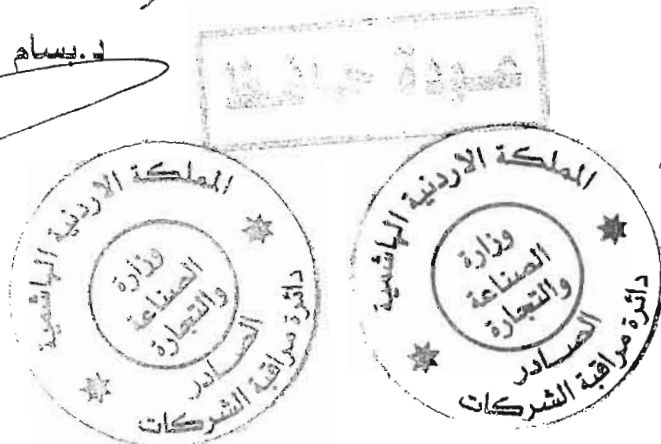 د.بسام
المملكة الاردنية الهاشمية
وزارة
الصناعة
والتجارة
الصادر
دائرة مراقبة الشركات
المملكة الاردنية الهاشمية
وزارة
الصناعة
والتجارة
الصادر
دائرة مراقبة الشركات